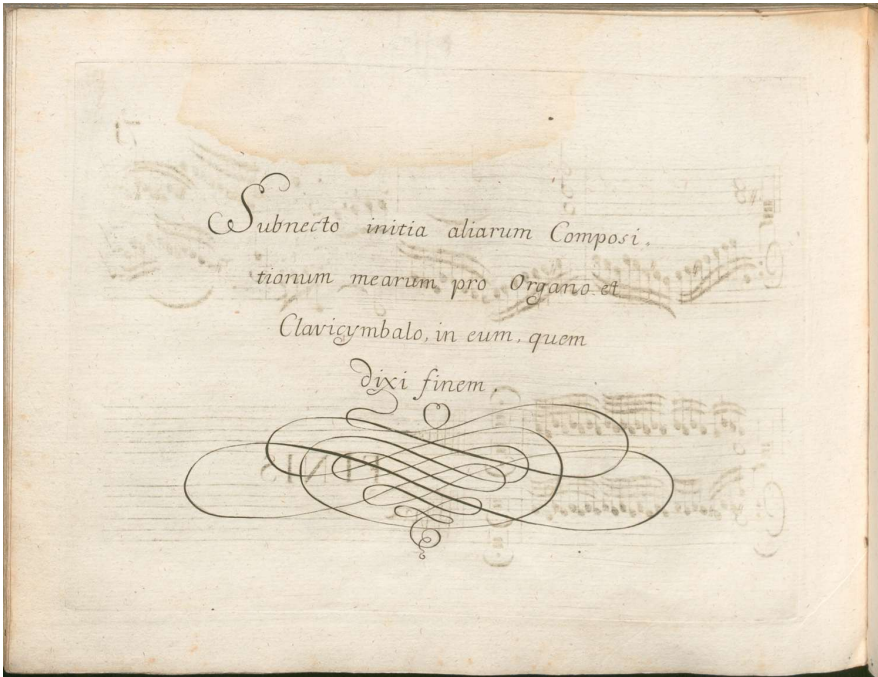 Subnecto initia aliarum Composi,
tionum mearum pro Organo et
Clavicymbalo, in eum, quem
dixi finem.
FINIS